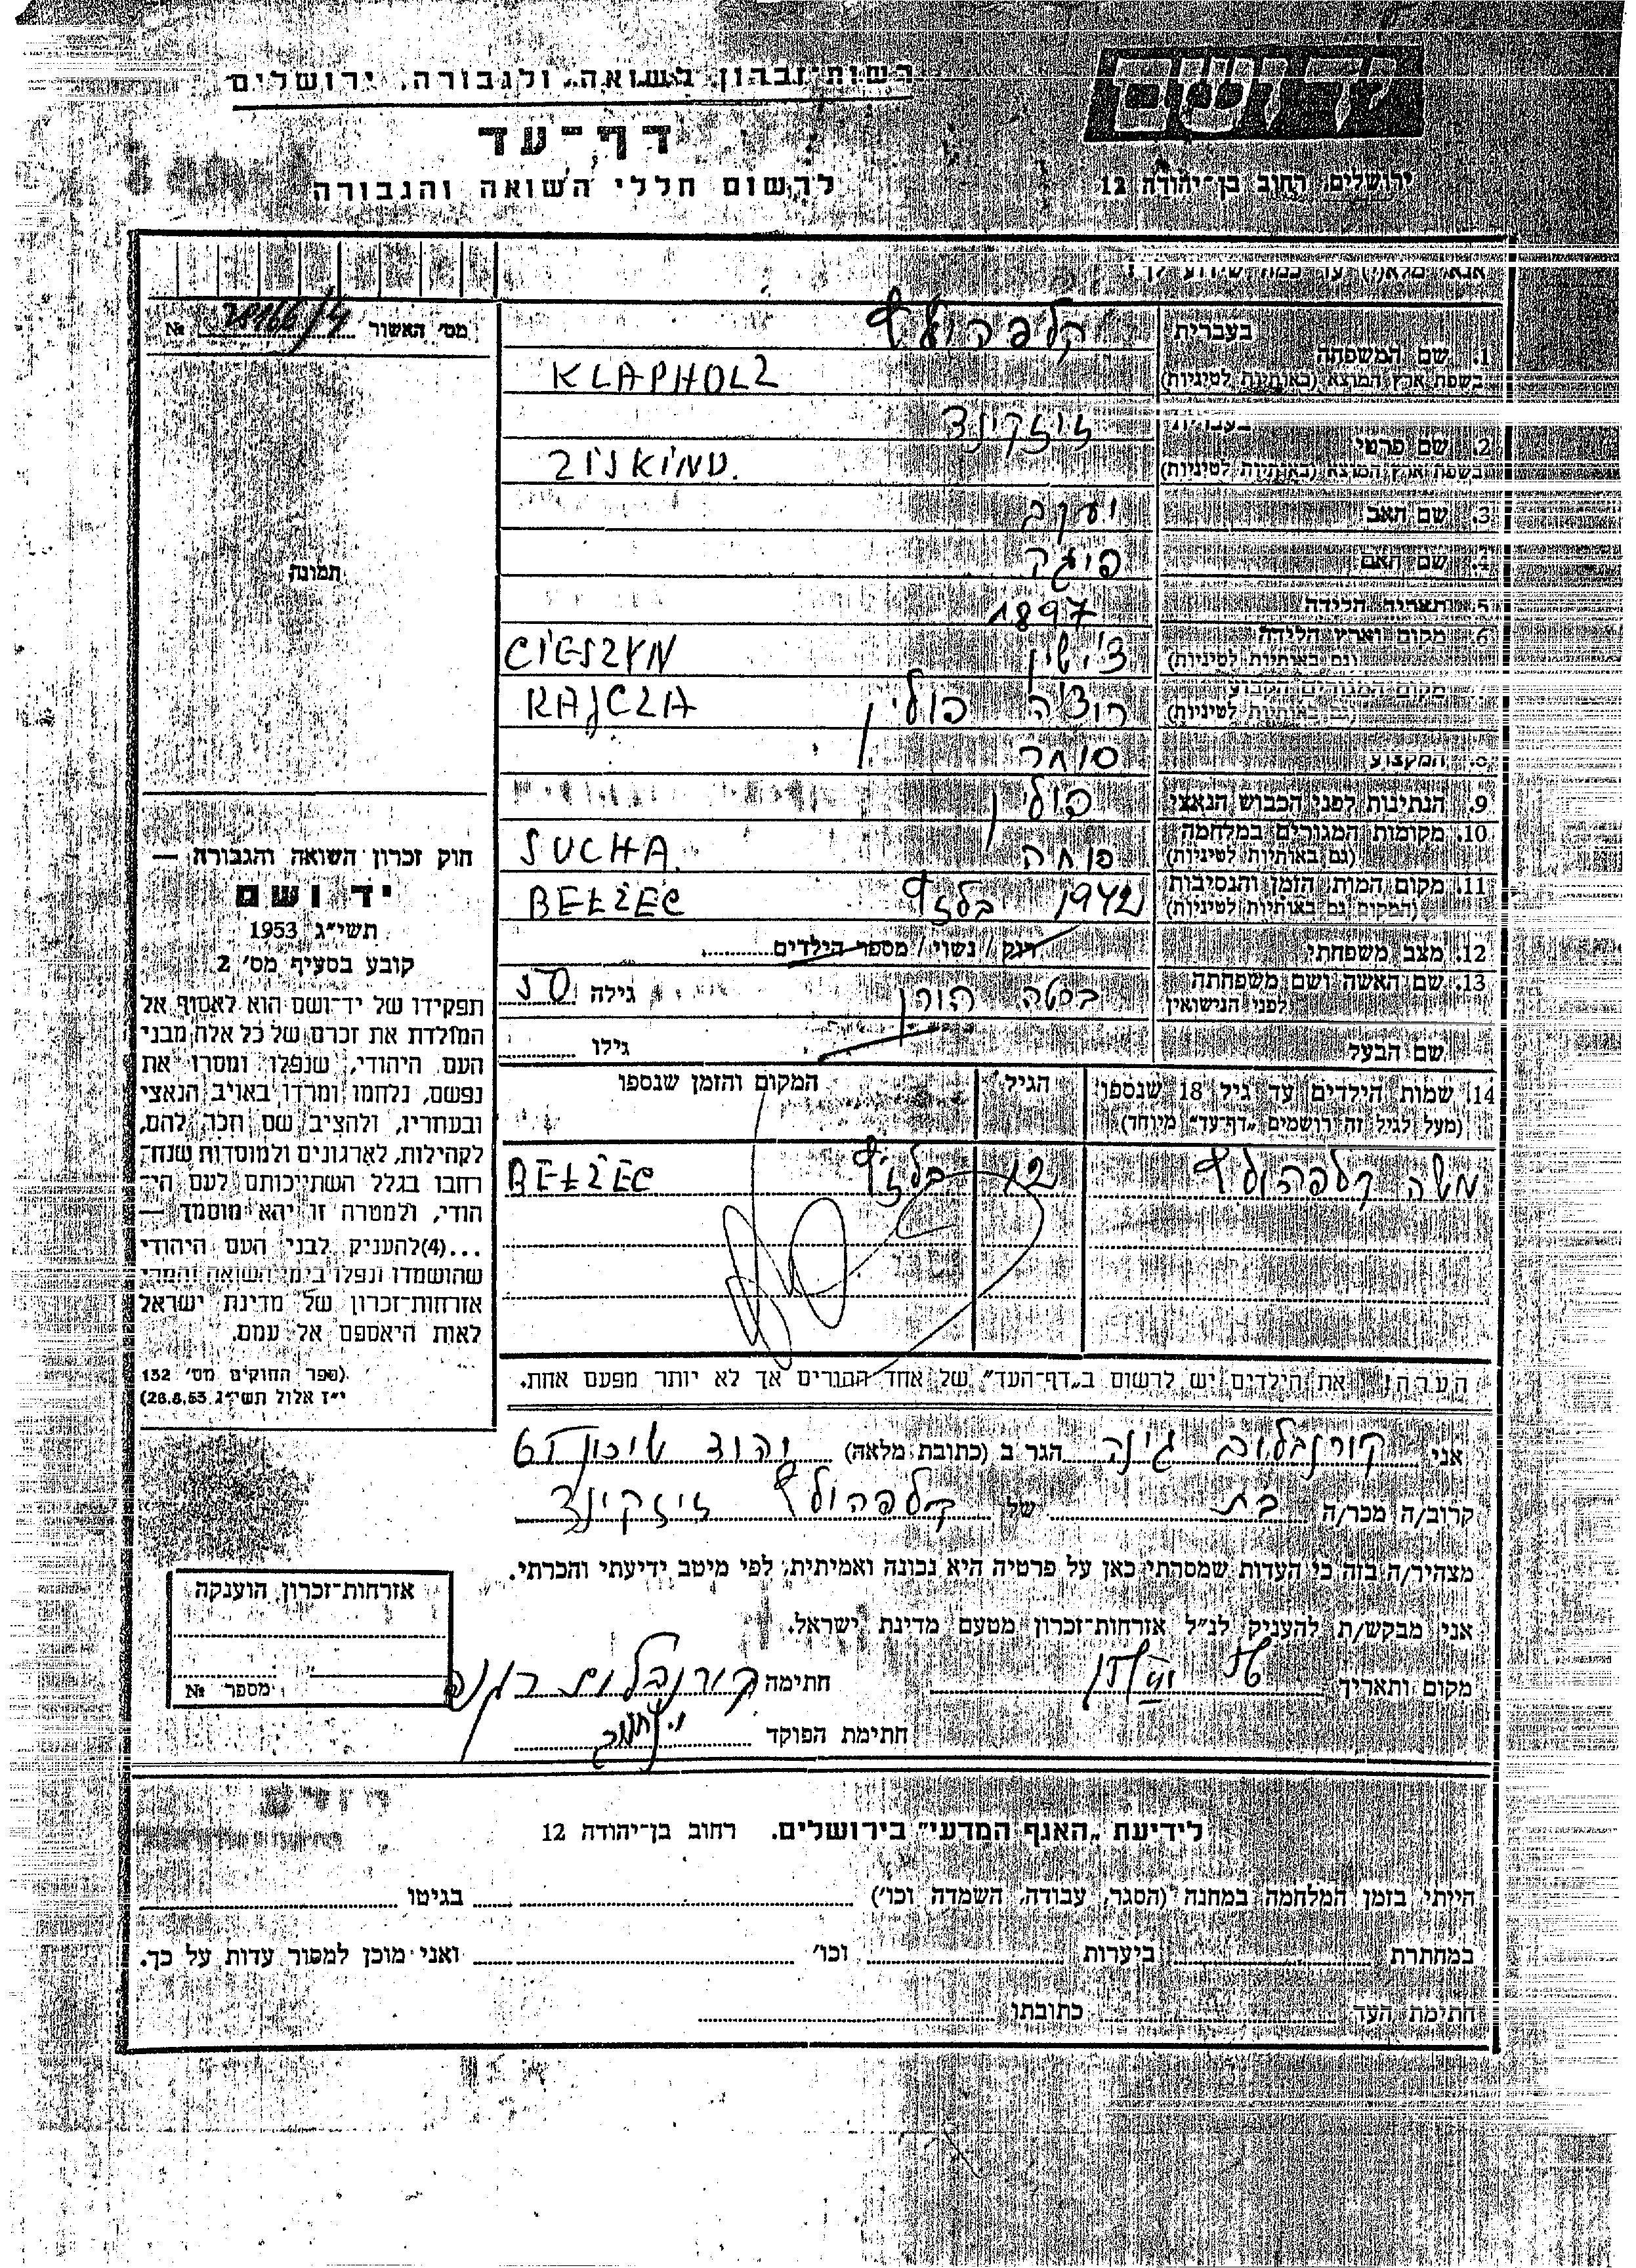 יד ושם
ירושלים, רחוב בן־יהודה 12
רשות־זכרון לשואה ולגבורה, ירושלים
דף־עד
לרשום חללי השואה והגבורה
אנא, מלא(י) עד כמה שידוע לך:
מס׳ האשור № 28166/4
1. שם המשפחה
בעברית קלפהולץ
בשפת ארץ המוצא (באותיות לטיניות) KLAPHOLZ
2. שם פרטי
בעברית זיזקינד
בשפת ארץ המוצא (באותיות לטיניות) ZISKIND.
3. שם האב יעקב
4. שם האם פיגה
5. תאריך הלידה 1897
6. מקום וארץ הלידה
(גם באותיות לטיניות) צ׳שין CIESZYN
7. מקום המגורים הקבוע
(גם באותיות לטיניות) רוצ׳ה פולין RAJCZA
8. המקצוע סוחר
9. הנתינות לפני הכבוש הנאצי פולין
10. מקומות המגורים במלחמה
(גם באותיות לטיניות) סוחה SUCHA.
11. מקום המות, הזמן והנסיבות
(המקום גם באותיות לטיניות) 1942 בלזץ BEŁŻEC
12. מצב משפחתי רווק / נשוי / מספר הילדים
13. שם האשה ושם משפחתה
לפני הנישואין ברטה הורן גילה 50
שם הבעל גילו
14. שמות הילדים עד גיל 18 שנספו
(מעל לגיל זה רושמים „דף־עד״ מיוחד)
הגיל
המקום והזמן שנספו
משה קלפהולץ 12 בלזץ BEŁŻEC
הערה: את הילדים יש לרשום ב„דף־העד״ של אחד ההורים אך לא יותר מפעם אחת.
תמונה
חוק זכרון השואה והגבורה —
יד ושם
תשי״ג 1953
קובע בסעיף מס׳ 2
תפקידו של יד־ושם הוא לאסוף אל
המולדת את זכרם של כל אלה מבני
העם היהודי, שנפלו ומסרו את
נפשם, נלחמו ומרדו באויב הנאצי
ובעוזריו, ולהציב שם וזכר להם,
לקהילות, לארגונים ולמוסדות שנח־
רבו בגלל השתייכותם לעם הי־
הודי, ולמטרה זו יהא מוסמך —
...(4) להעניק לבני העם היהודי
שהושמדו ונפלו בימי השואה והמרי
אזרחות־זכרון של מדינת ישראל
לאות היאספם אל עמם.
(ספר החוקים מס׳ 132
י״ז אלול תשי״ג 28.8.53)
אני קורנבלום גינה הגר ב (כתובת מלאה) יהוד שיכון
קרוב/ה מכר/ה בת של קלפהולץ זיזקינד
מצהיר/ה בזה כי העדות שמסרתי כאן על פרטיה היא נכונה ואמיתית, לפי מיטב ידיעתי והכרתי.
אני מבקש/ת להעניק לנ״ל אזרחות־זכרון מטעם מדינת ישראל.
מקום ותאריך חתימה קורנבלום
חתימת הפוקד
אזרחות־זכרון הוענקה
מספר №
לידיעת „האגף המדעי״ בירושלים. רחוב בן־יהודה 12
הייתי בזמן המלחמה במחנה (הסגר, עבודה, השמדה וכו׳) בגיטו
במחתרת ביערות וכו׳ ואני מוכן למסור עדות על כך.
חתימת העד כתובתו